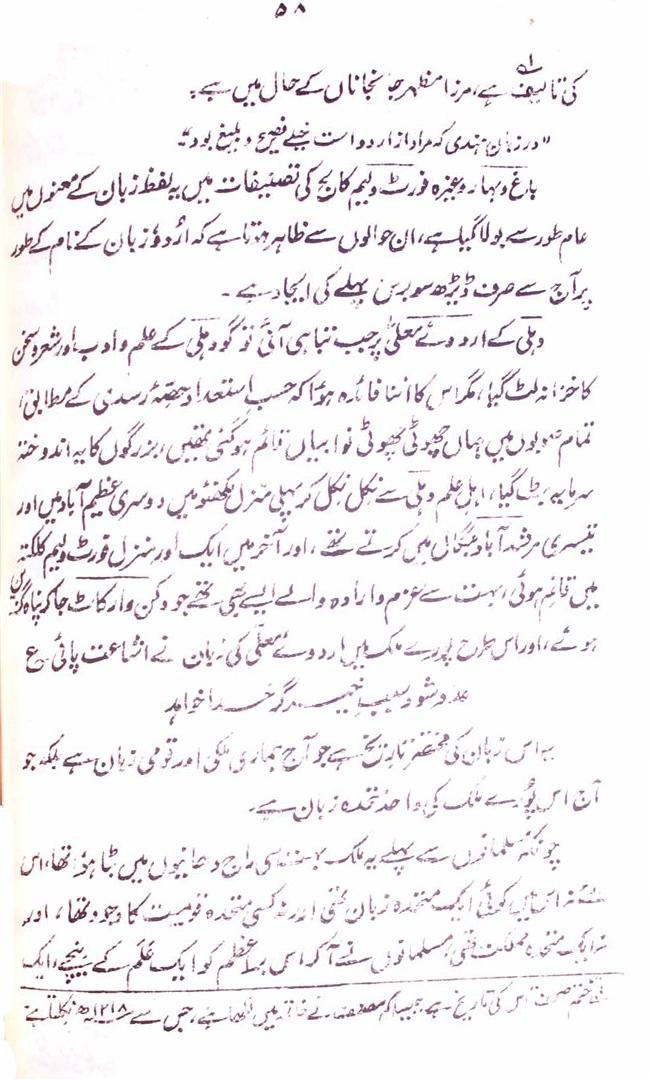 ۵۸
کی تالیف ہے، مرزا مظہر جانجاناں کے حال میں ہے۔
"در زبان ہندی کہ مراد از اردو است خیلے فصیح و بلیغ بود"۔
باغ و بہار وغیرہ فورٹ ولیم کالج کی تصنیفات میں یہ لفظ زبان کے معنوں میں
عام طور سے بولا گیا ہے، ان حوالوں سے ظاہر ہوتا ہے کہ اُردو زبان کے نام کے طور
پر آج سے صرف ڈیڑھ سو برس پہلے کی ایجاد ہے۔
دہلی کے اردوئے معلیٰ پر جب تباہی آئی تو گو دہلی کے علم و ادب اور شعر و سخن
کا خزانہ لٹ گیا، مگر اس کا اتنا فائدہ ہوا کہ حسب استعداد حصۂ رسدی کے مطابق،
تمام صوبوں میں جہاں چھوٹی چھوٹی نوابیاں قائم ہو گئی تھیں، بزرگوں کا یہ اندوختہ
سرمایہ بٹ گیا، اہل علم دہلی سے نکل نکل کر پہلی منزل لکھنؤ میں دوسری عظیم آباد میں اور
تیسری مرشد آباد بنگال میں کرتے تھے، اور آخر میں ایک اور منزل فورٹ ولیم کلکتہ
میں قائم ہوئی، بہت سے عزم و ارادہ والے ایسے بھی تھے جو دکن و ارکاٹ جا کر پناہ گزیں
ہوئے، اور اس طرح پورے ملک میں اردوئے معلّٰی کی زبان نے اشاعت پائی ع
عدو شود سبب خیر گر خدا خواہد
یہ اس زبان کی مختصر تاریخ ہے جو آج ہماری ملکی اور قومی زبان ہے بلکہ جو
آج اس پورے ملک کی واحد متحدہ زبان ہے۔
چونکہ مسلمانوں سے پہلے یہ ملک بہت سی راج دھانیوں میں بٹا ہوا تھا، اس
لئے نہ اس میں کوئی ایک متحدہ زبان تھی اور نہ کسی متحدہ قومیت کا وجود تھا، اور
نہ ایک متحدہ مملکت تھی، مسلمانوں نے آ کر اس براعظم کو ایک عَلَم کے نیچے، ایک
اس کی تاریخ ہے جیسا کہ مصنف نے خاتمہ میں لکھا ہے، جس سے ۱۲۱۸ھ نکلتا ہے